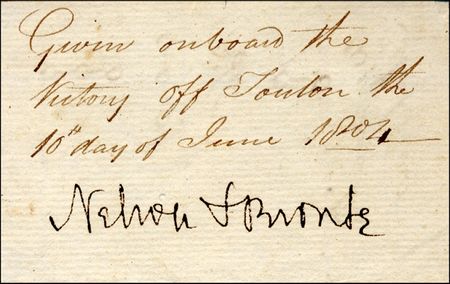 Given onboard the
Victory off Toulon the
10th day of June 1804
Nelson & Bronte